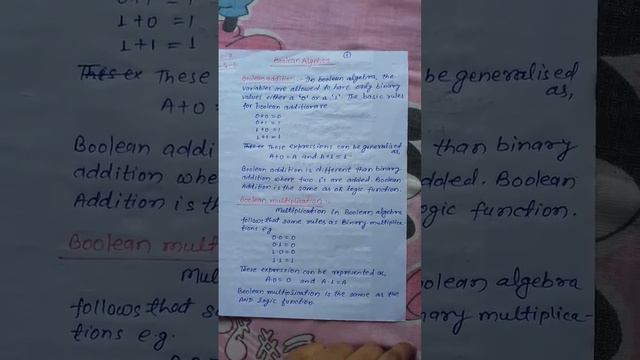 Boolean Algebra
①
Boolean addition :- In boolean algebra, the
variables are allowed to have only binary
values either a '0' or a '1'. The basic rules
for boolean addition are
0+0=0
0+1=1
1+0=1
1+1=1
These expressions can be generalised
as,
A+0=A and A+1=1
Boolean addition is different than binary
addition where two 1's are added. Boolean
Addition is the same as OR logic function.
Boolean multiplication:-
Multiplication in Boolean algebra
follows that same rules as Binary multiplica-
tions e.g.
0·0=0
0·1=0
1·0=0
1·1=1
These expression can be represented as,
A·0=0 and A·1=A
Boolean multiplication is the same as the
AND logic function